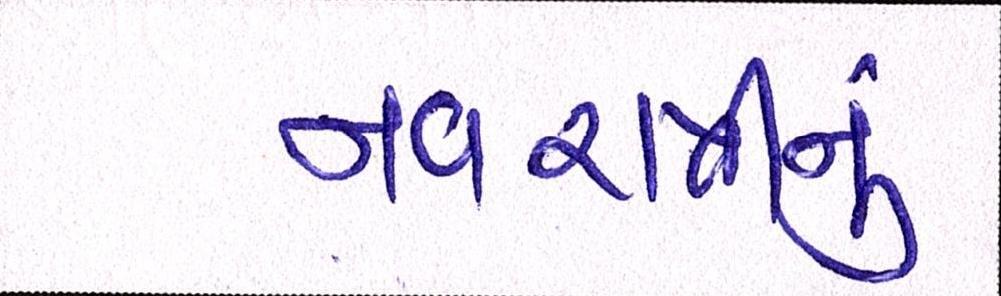 નવરાત્રીનું